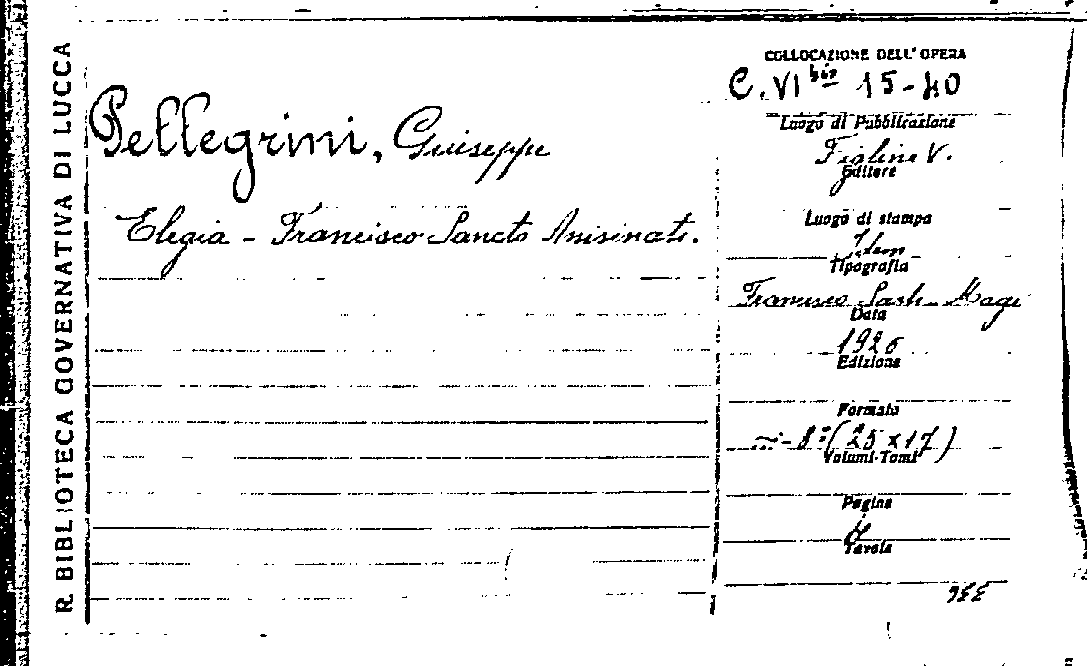 R. BIBLIOTECA GOVERNATIVA DI LUCCA
Pellegrini, Giuseppe
Elegia - Francisco Sancto Assisinati.
COLLOCAZIONE DELL'OPERA
C. VI bis 15-40
Luogo di Pubblicazione
Figline V.
Editore
Luogo di stampa
Idem
Tipografia
Francisco
Data
192
Edizione
Formato
8° (25 x 17)
Volumi-Tomi
Pagine
Tavole